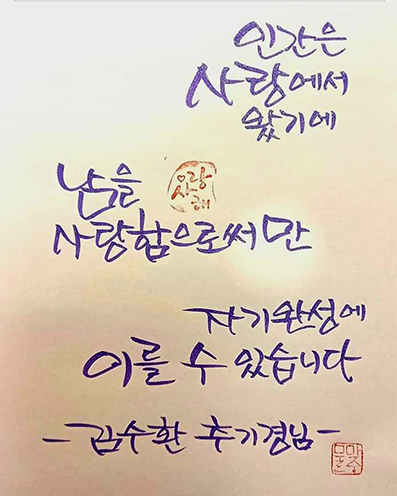 인간은
사랑에서
왔기에
남을
사랑해
사랑함으로써만
자기완성에
이를 수 있습니다
-김수환 추기경님-